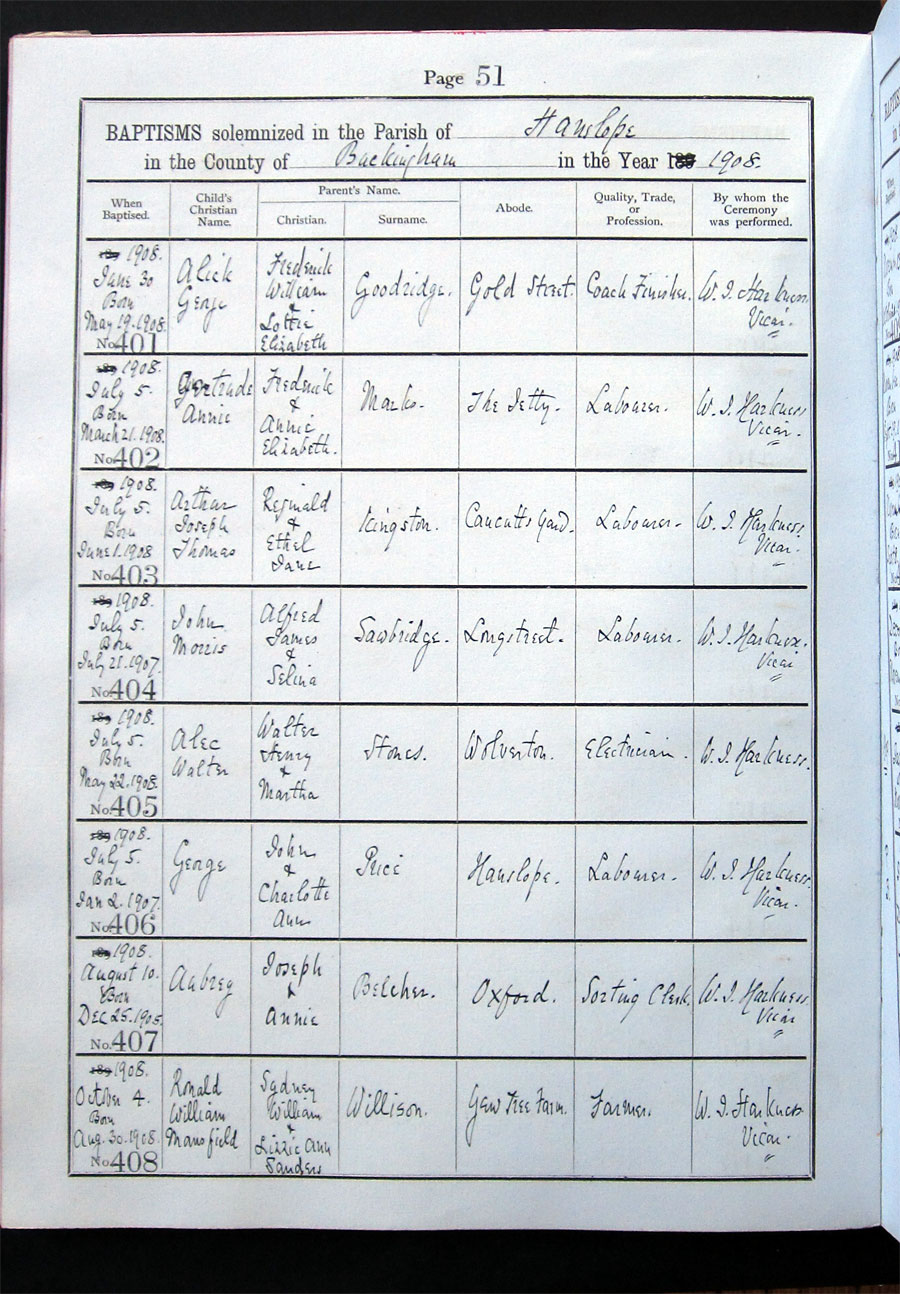 Page 51
BAPTISMS solemnized in the Parish of Hanslope
in the County of Buckingham in the Year 189 1908.
When Baptised.
Child's Christian Name.
Parent's Name.
Christian.
Surname.
Abode.
Quality, Trade, or Profession.
By whom the Ceremony was performed.
189 1908.
June 30
Born
May 19. 1908.
No. 401
Alick
George
Frederick
William
&
Lottie
Elizabeth
Goodridge.
Gold Street.
Coach Finisher.
W. J. Harkness.
Vicar.
189 1908.
July 5.
Born
March 21. 1908.
No. 402
Gertrude
Annie
Frederick
&
Annie
Elizabeth.
Marks.
The Jetty.
Labourer.
W. J. Harkness
Vicar.
189 1908.
July 5.
Born
June 1. 1908
No. 403
Arthur
Joseph
Thomas
Reginald
&
Ethel
Jane
Kingston.
Yard.
Labourer.
W. J. Harkness.
Vicar.
189 1908.
July 5.
Born
July 21. 1907.
No. 404
John
Morris
Alfred
James
&
Selina
Sawbridge.
Longstreet.
Labourer.
W. J. Harkness.
Vicar
189 1908.
July 5.
Born
May 22. 1908.
No. 405
Alec
Walter
Walter
Henry
&
Martha
Stones.
Wolverton.
Electrician.
W. J. Harkness.
189 1908.
July 5.
Born
Jan 2. 1907.
No. 406
George
John
&
Charlotte
Ann
Price
Hanslope.
Labourer.
W. J. Harkness.
Vicar.
189 1908.
August 10.
Born
Dec 25. 1905.
No. 407
Aubrey
Joseph
&
Annie
Belcher.
Oxford.
Sorting Clerk.
W. J. Harkness
Vicar
189 1908.
October 4.
Born
Aug. 30. 1908.
No. 408
Ronald
William
Mansfield
Sydney
William
&
Lizzie Ann
Sanders
Willison.
Yew Tree Farm.
Farmer.
W. J. Harkness
Vicar.